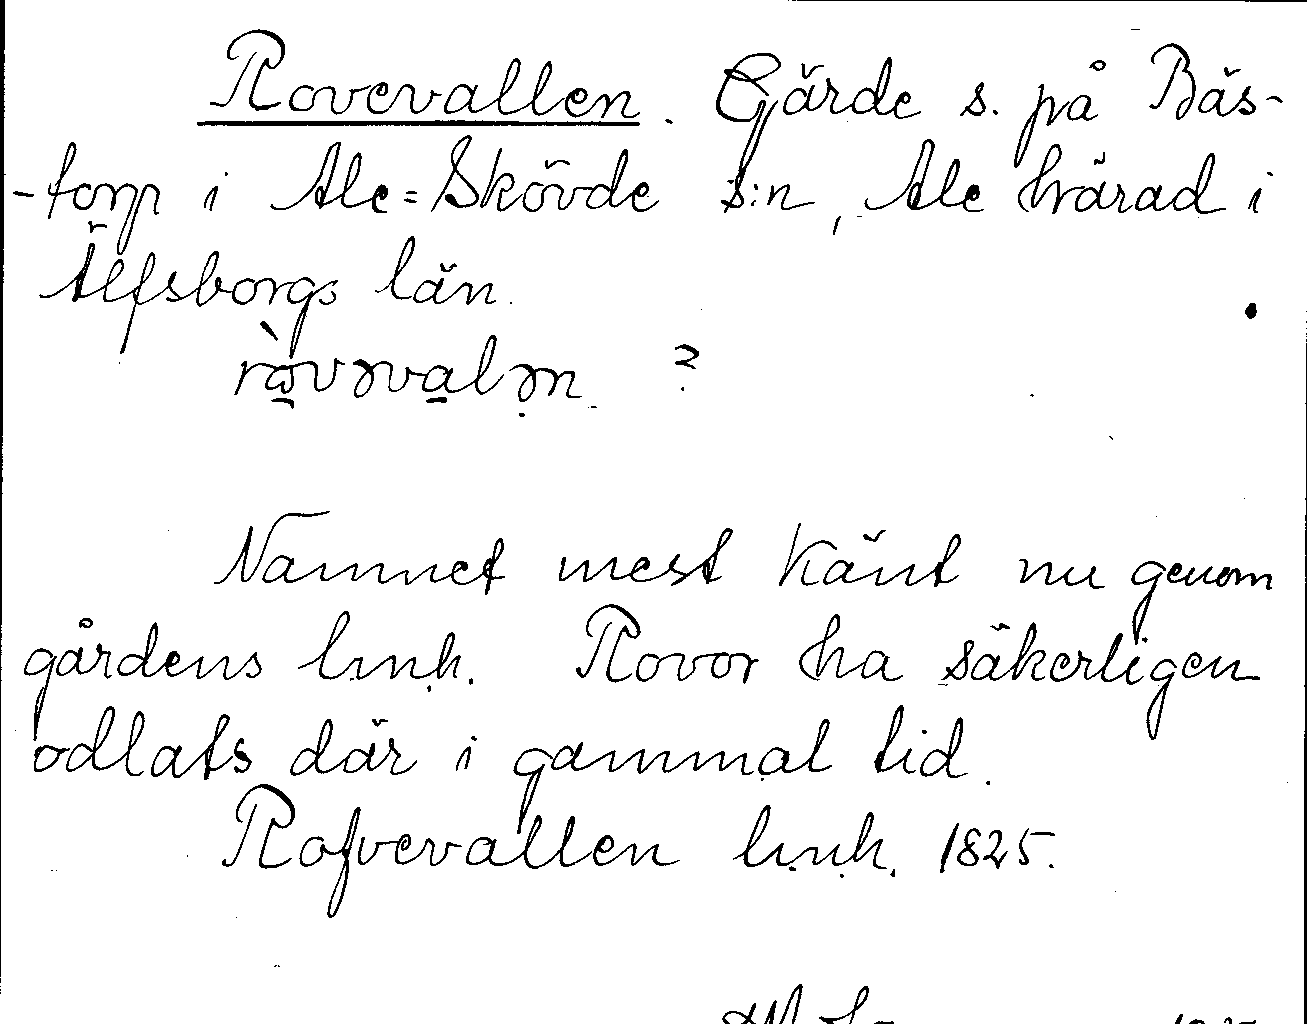 Rovevallen. Gärde s. på Bäs-
-torp i Ale=Skövde s:n, Ale härad i
Älfsborgs län.
ràvəvalən ?
Namnet mest känt nu genom
gårdens l.n.h. Rovor ha säkerligen
odlats där i gammal tid.
Rofvevallen l.n.h. 1825.